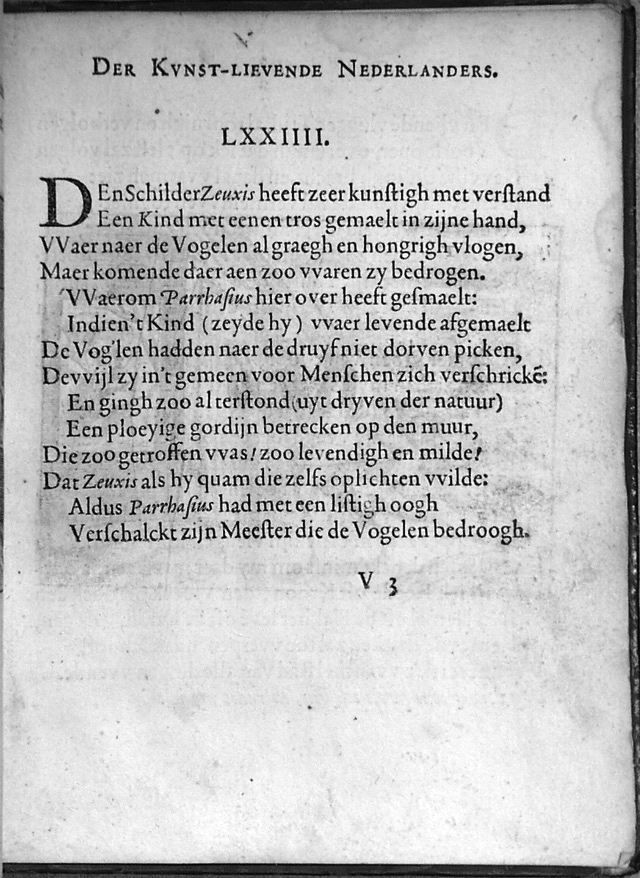 DER KVNST-LIEVENDE NEDERLANDERS.
LXXIIII.
DEn Schilder Zeuxis heeft zeer kunſtigh met verſtand
Een Kind met eenen tros gemaelt in zijne hand,
VVaer naer de Vogelen al graegh en hongrigh vlogen,
Maer komende daer aen zoo vvaren zy bedrogen.
VVaerom Parrhaſius hier over heeft geſmaelt:
Indien't Kind (zeyde hy) vvaer levende afgemaelt
De Vog'len hadden naer de druyf niet dorven picken,
Devvijl zy in't gemeen voor Menſchen zich verſchrickē:
En gingh zoo al terſtond (uyt dryven der natuur)
Een ploeyige gordijn betrecken op den muur,
Die zoo getroffen vvas! zoo levendigh en milde!
Dat Zeuxis als hy quam die zelfs oplichten vvilde:
Aldus Parrhaſius had met een liſtigh oogh
Verſchalckt zijn Meeſter die de Vogelen bedroogh.
V 3